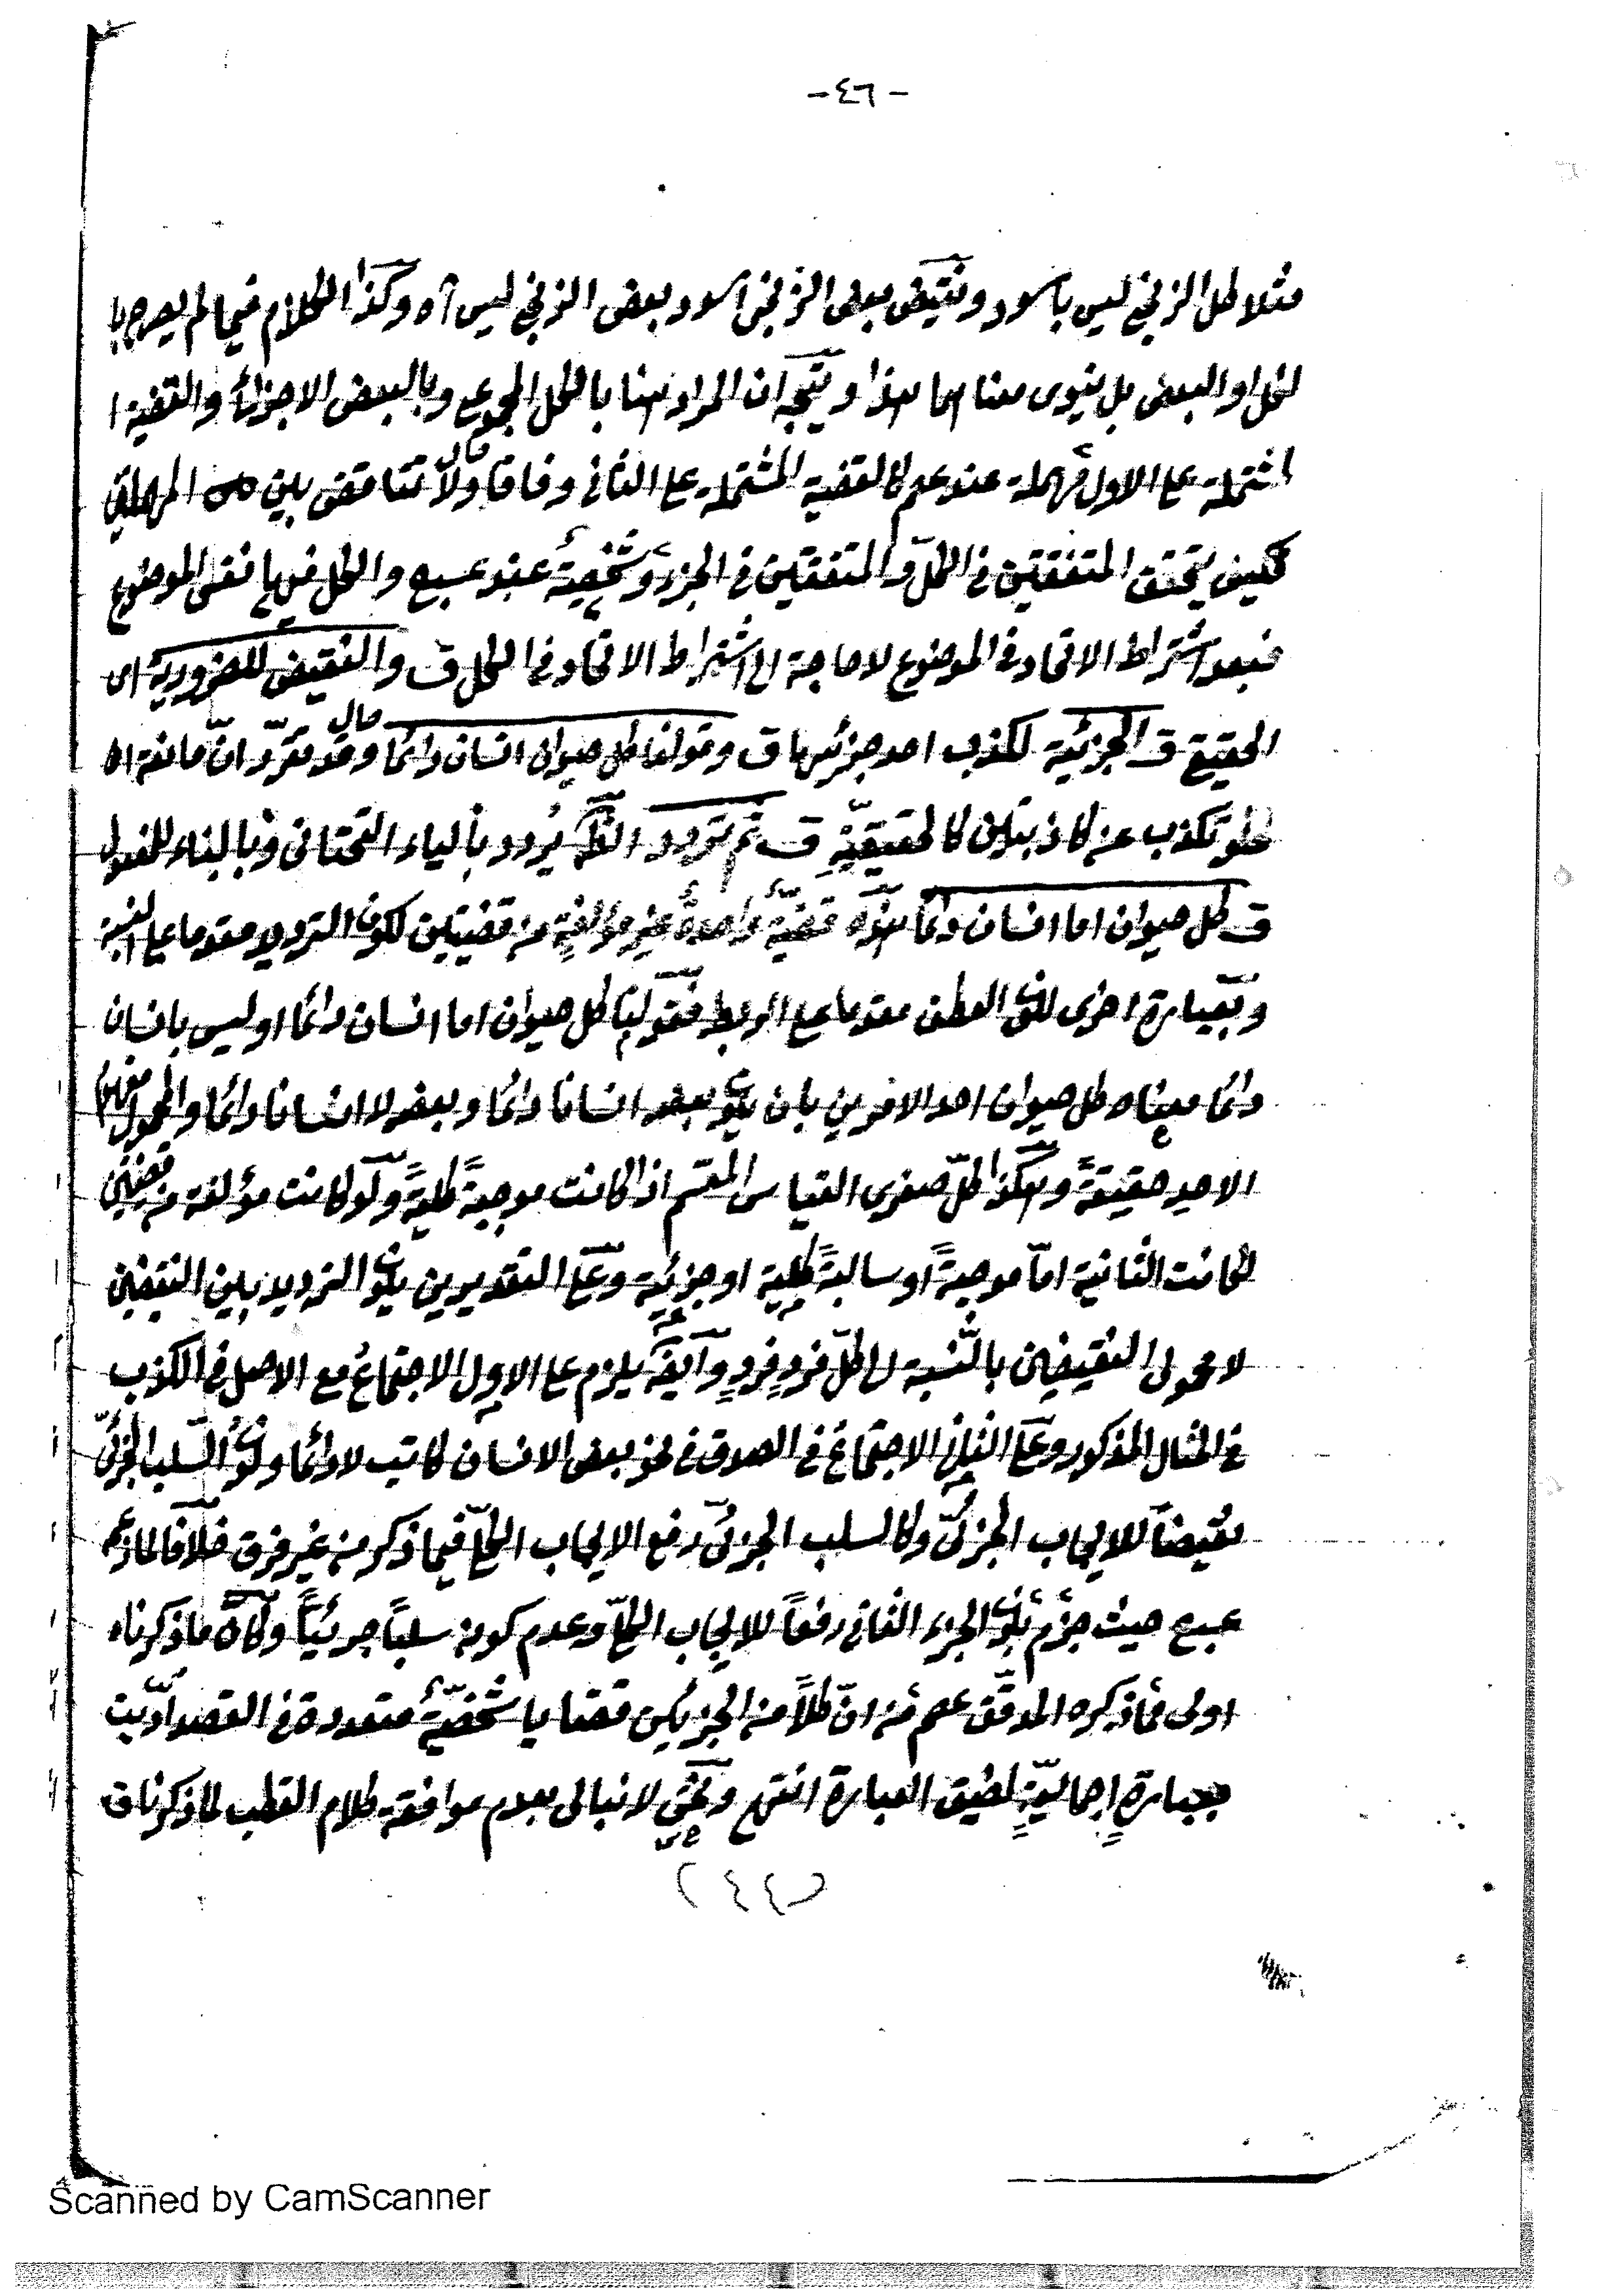 -٤٦-
مثلا كل الزنجي ليس باسود ونقيض بعض الزنجي اسود بعض الزنجي ليس آه وكذا الكلام فيما لم يصرح با
لكل او البعض بل ينوى معناهما هذا ويتجه ان المراد هنا بالكل المجموع وبالبعض الاجزاء والقضية ا
لمشتملة على الاول مهملة عند عم كالقضية المشتملة على الثاني وفاقا ولا تناقض بين المهملتين
فكيف يتحقق المتفقتين في الكل والمتفقتين في الجزء وشخصية عند عبيع والكل فيها نفس الموضوع
فبعد اشتراط الاتحاد في الموضوع لا حاجة الى اشتراط الاتحاد في الكل ق والنقيض للضرورية اى
الحقيقي ق الجزئية لكذب احد جزئيها ق وقولنا كل حيوان انسان دائما وقد تقرر ان مانعة ا
لخلو تكذب عن كاذبتين كالحقيقية ق ثم تردد الظ يردد بالياء التحتاني وبالبناء للمفعول
ق كل حيوان اما انسان دائما هذه قضية واحدة غير مؤلفة من قضيتين لكون الترديد مقدما على النسبة
وبعبارة اخرى لكون العطف مقدما على الربط فقولنا كل حيوان اما انسان دائما او ليس بانسان
دائما معناه كل حيوان احد الامرين بان يكون بعضه انسانا دائما وبعضه لا انسانا دائما والمحمول مفهوم
الاحد حقيقة وهكذا كل صغرى القياس المقسم اذا كانت موجبة كلية ولو كانت مؤلفة من قضيتين
لكانت الثانية اما موجبة او سالبة كلية او جزئية وعلى التقديرين يكون الترديد بين النقيضين
لا محمولى النقيضين بالنسبة الى كل فرد فرد وايضا يلزم على الاول الاجتماع مع الاصل في الكذب
في المثال المذكور وعلى الثاني الاجتماع في الصدق في نحو بعض الانسان كاتب لا دائما وكون السلب الجزئي
نقيضا للايجاب الجزئي وكالسلب الجزئي رفع الايجاب الكلي فيما ذكر من غير فرق خلافا لما زعمه
عبيع حيث جزم بكون الجزء الثاني رفعا للايجاب الكلي وعدم كونه سلبا جزئيا وكان ما ذكرناه
اولى مما ذكره المدقق عم من ان كلا من الجزئين قضايا شخصية متعددة في القصد ادّيت
بعبارة اجمالية لضيق العبارة انتهى ونحن لا نبالى بعدم موافقة كلام القطب لما ذكرنا ق
(٤٤)
Scanned by CamScanner